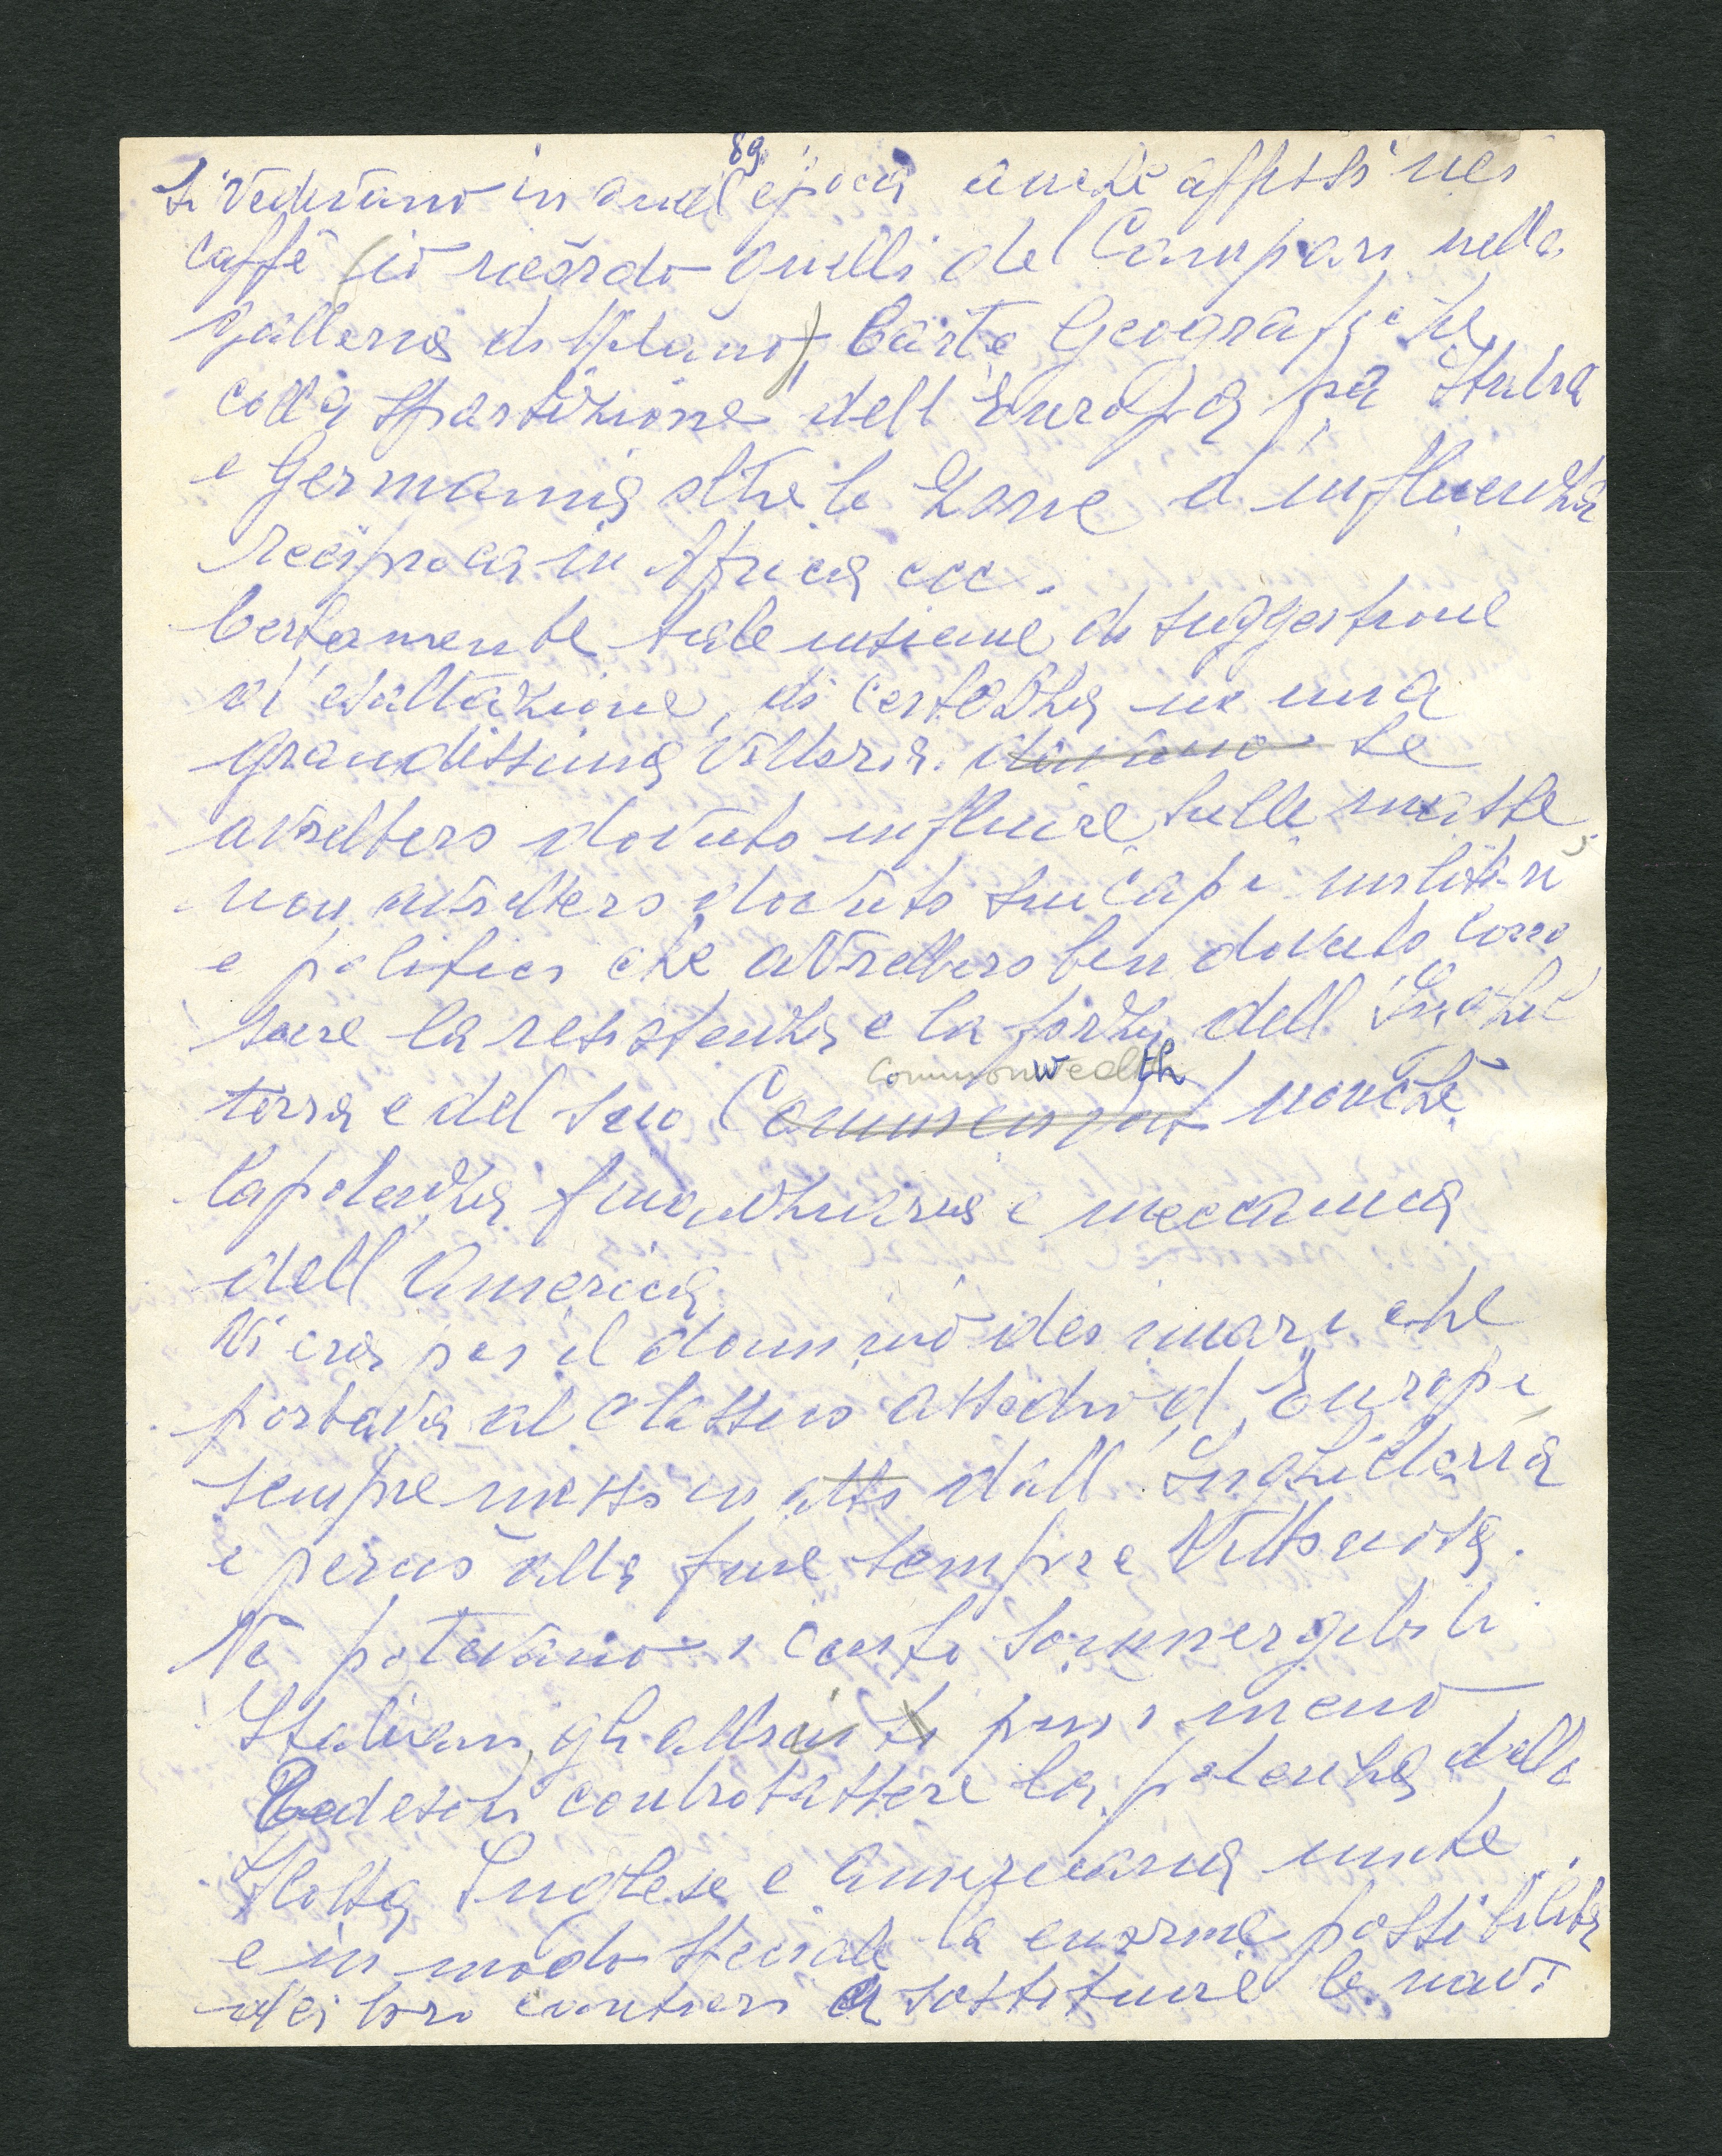 89.
Si vedevano in quel epoca anche affissi nei
caffè (io ricordo quelli del Campari nella
galleria di Milano), Carte Geografiche
colla spartizione dell'Europa fra Italia
e Germania oltre le zone d'influenza
reciproca in Africa ecc.
Certamente tale insieme di suggestione
d'esaltazione, di certezza in una
grandissima vittoria. se
avrebbero dovuto influire sulle masse,
non avrebbero dovuto sui capi militari
e politici che avrebbero ben dovuto cono
scere la resistenza e la forza dell'Inghil
Commonwealth
terra e del suo nonchè
la potenza finanziaria e meccanica
dell'America
Vi era poi il dominio dei mari che
portava al classico assedio d'Europa
sempre messo in atto dall'Inghilterra
e perciò alla fine sempre vittoriosa.
Nè potevano i cento sommergibili
Italiani, gli altri più o meno
Tedeschi controbattere la potenza della
Flotta Inglese e americana unite
e in modo speciale la enorme possibilità
dei loro cantieri a sostituire le navi